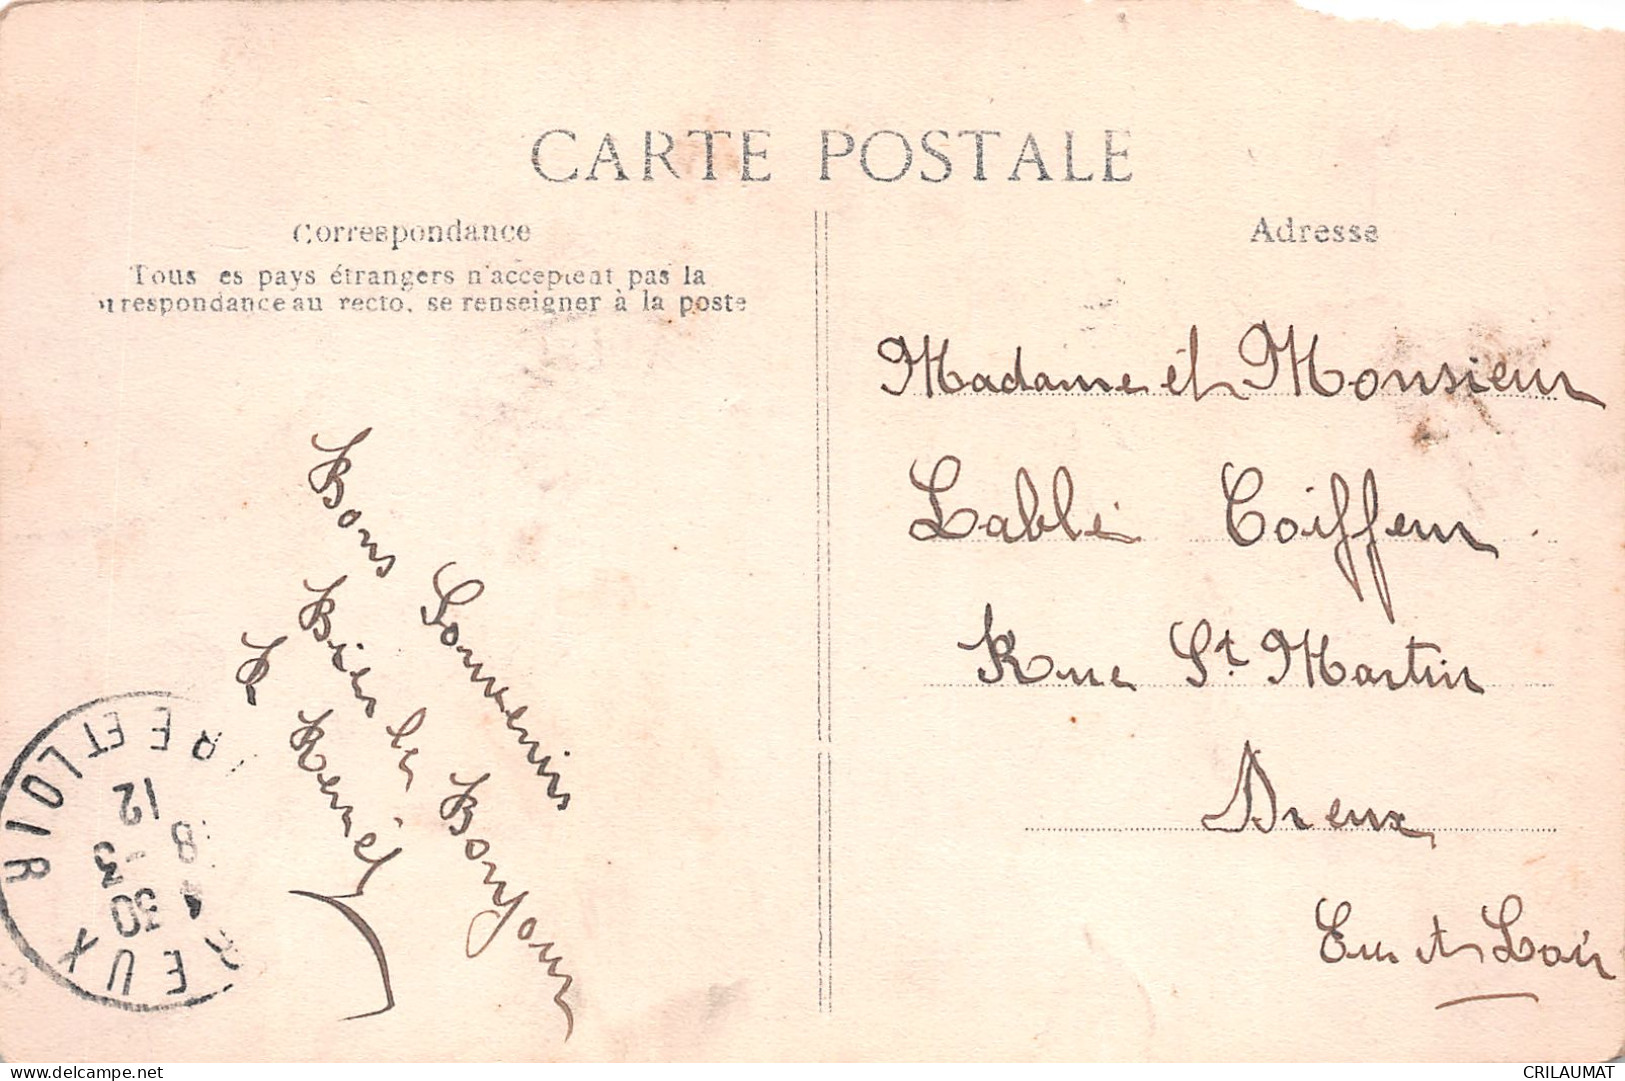 CARTE POSTALE
Correspondance
Tous es pays étrangers n'acceptent pas la
rrespondance au recto, se renseigner à la poste
Bons Souvenirs
Bien le Bonjour
Adresse
Madame et Monsieur
Lablé Coiffeur
Rue St Martin
Dreux
Eure et Loir
REUX
EURE ET LOIR
12
8 - 3
30
https://www.delcampe.net
CRILAUMAT